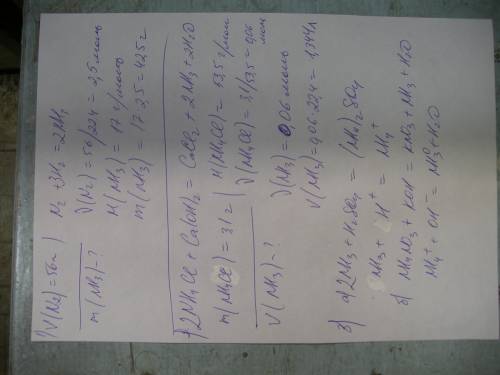 1) V(N2)=56л | N2 + 3H2 = 2NH3
m(NH3)-? | ν(N2) = 56/22,4 = 2,5 моль
M(NH3) = 17 г/моль
m(NH3) = 17·2,5 = 42,5 г
2NH4Cl + Ca(OH)2 = CaCl2 + 2NH3 + 2H2O
m(NH4Cl) = 31 г | M(NH4Cl) = 53,5 г/моль
ν(NH4Cl) = 31/53,5 = 0,06 моль
V(NH3)-? | ν(NH3) = 0,06 моль
V(NH3) = 0,06·22,4 = 1,344 л
3) а) 2NH3 + H2SO4 = (NH4)2SO4
NH3 + H+ = NH4+
б) NH4NO3 + KOH = KNO3 + NH3 + H2O
NH4+ + OH- = NH3 + H2O